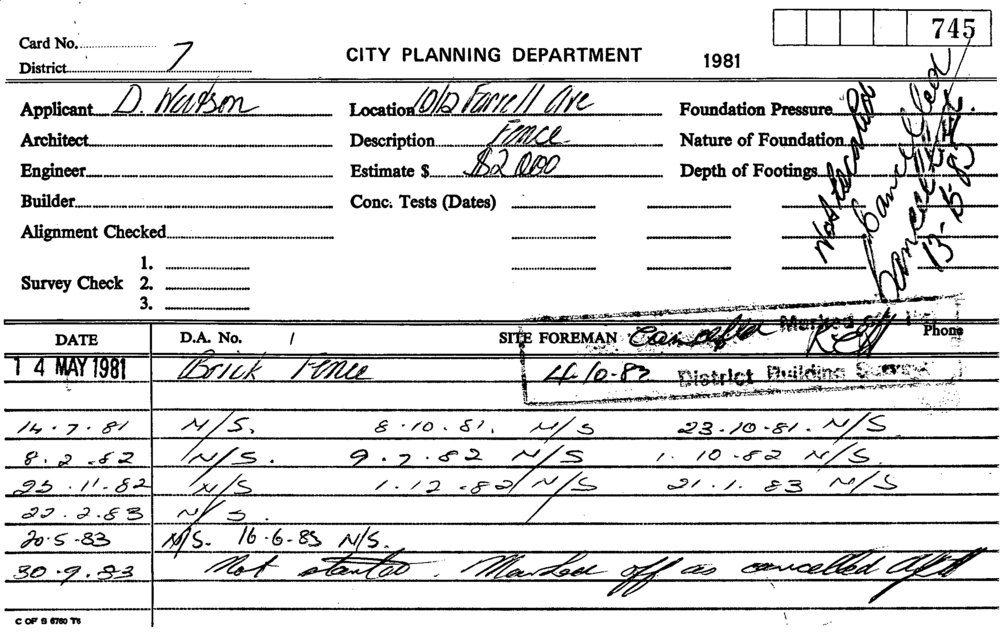 745
Card No.
District 7
CITY PLANNING DEPARTMENT 1981
Applicant D. Watson Location 10/12 Farrell Ave Foundation Pressure
Architect Description Fence Nature of Foundation
Engineer Estimate $ $2,000 Depth of Footings
Builder Conc. Tests (Dates)
Alignment Checked
1.
Survey Check 2.
3.
Cancelled
DATE D.A. No. SITE FOREMAN Cancelled Marked Off Phone
14 MAY 1981 Brick Fence 4-10-83 District Building Survey
14.7.81 N/S. 8.10.81. N/S 23.10.81. N/S
8.2.82 N/S. 9.7.82 N/S 1.10.82 N/S.
23.11.82 N/S 1.12.82 N/S 21.1.83 N/S
22.2.83 N/S.
20.5.83 N/S. 16-6-83 N/S.
30.9.83 Not started. Marked off as cancelled
C OF S 6760 T6